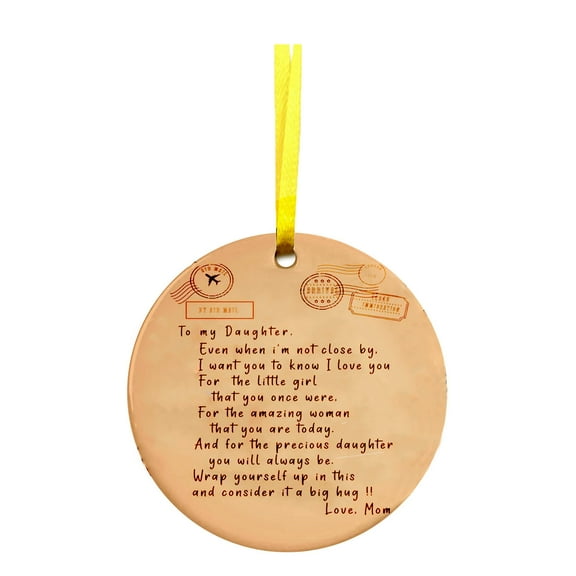 AIR MAIL
BY AIR MAIL
To my Daughter.
Even when i'm not close by.
I want you to know I love you
For the little girl
that you once were.
For the amazing woman
that you are today.
And for the precious daughter
you will always be.
Wrap yourself up in this
and consider it a big hug !!
Love. Mom